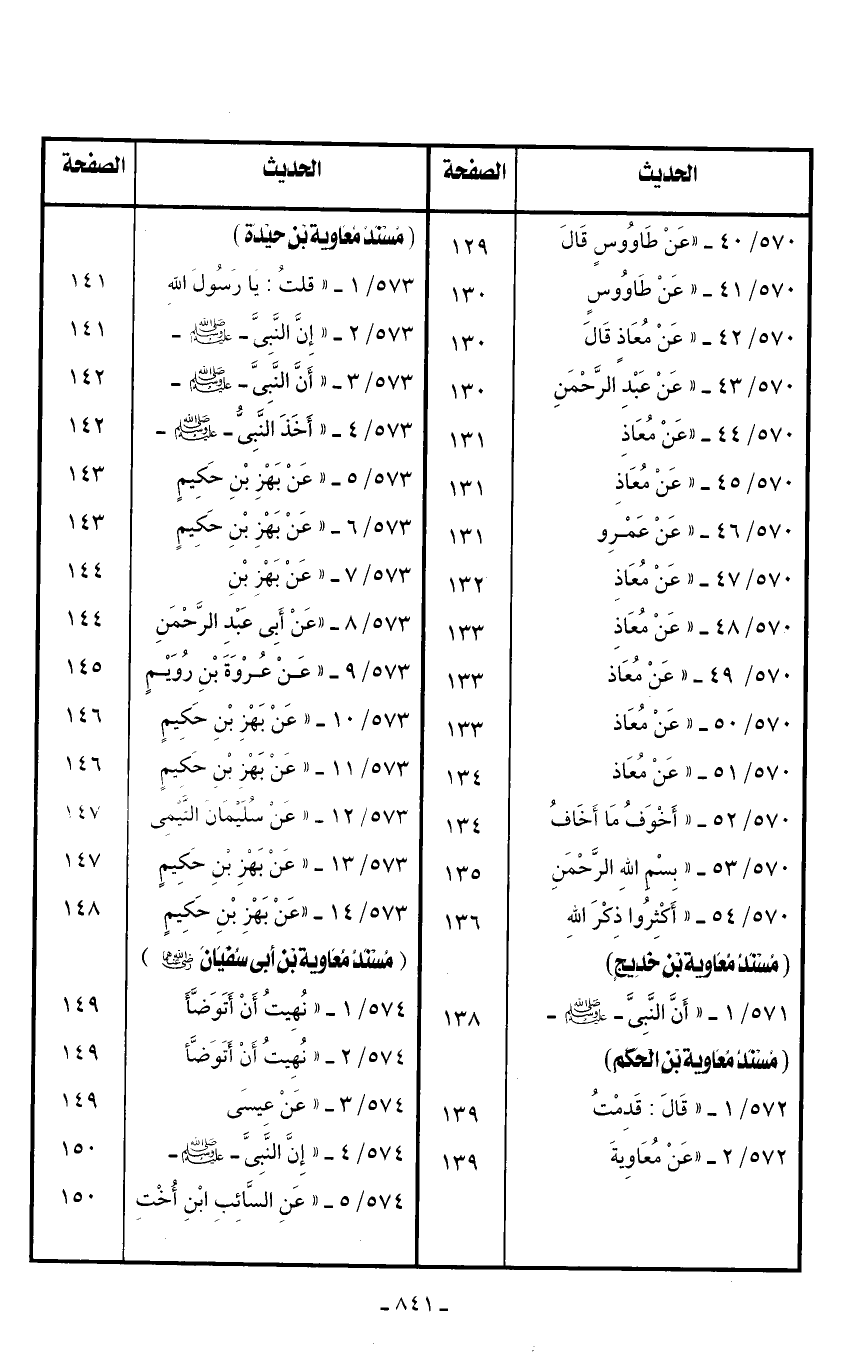 الحديث الصفحة
٥٧٠/ ٤٠ ـ «عَنْ طَاوُوسٍ قَالَ ١٢٩
٥٧٠/ ٤١ ـ « عَنْ طَاوُوسٍ ١٣٠
٥٧٠/ ٤٢ ـ « عَنْ مُعَاذٍ قَالَ ١٣٠
٥٧٠/ ٤٣ ـ « عَنْ عَبْدِ الرَّحْمَنِ ١٣٠
٥٧٠/ ٤٤ ـ «عَنْ مُعَاذِ ١٣١
٥٧٠/ ٤٥ ـ « عَنْ مُعَاذِ ١٣١
٥٧٠/ ٤٦ ـ « عَنْ عَمْرِو ١٣١
٥٧٠/ ٤٧ ـ « عَنْ مُعَاذِ ١٣٢
٥٧٠/ ٤٨ ـ « عَنْ مُعَاذِ ١٣٣
٥٧٠/ ٤٩ ـ « عَنْ مُعَاذ ١٣٣
٥٧٠/ ٥٠ ـ « عَنْ مُعَاذ ١٣٣
٥٧٠/ ٥١ ـ « عَنْ مُعَاذ ١٣٤
٥٧٠/ ٥٢ ـ « أَخْوَفُ مَا أَخَافُ ١٣٤
٥٧٠/ ٥٣ ـ « بِسْمِ اللهِ الرَّحْمَنِ ١٣٥
٥٧٠/ ٥٤ ـ « أَكْثِرُوا ذِكْرَ اللهِ ١٣٦
( مُسْنَدُ مُعَاوِيَةَ بْنِ خَدِيجٍ)
٥٧١/ ١ ـ « أَنَّ النَّبِىَّ ـ ﷺ ـ ١٣٨
( مُسْنَدُ مُعَاوِيَةَ بْنِ الحَكَمِ)
٥٧٢/ ١ ـ « قَالَ : قَدِمْتُ ١٣٩
٥٧٢/ ٢ ـ «عَنْ مُعَاوِيةَ ١٣٩
الحديث الصفحة
( مُسْنَدُ مُعَاوِيَةَ بْنِ حَيْدَةَ )
٥٧٣/ ١ ـ « قلتُ : يَا رَسُولَ اللهِ ١٤١
٥٧٣/ ٢ ـ « إِنَّ النَّبِىَّ ـ ﷺ ـ ١٤١
٥٧٣/ ٣ ـ « أَنَّ النَّبِىَّ ـ ﷺ ـ ١٤٢
٥٧٣/ ٤ ـ « أَخَذَ النَّبِىُّ ـ ﷺ ـ ١٤٢
٥٧٣/ ٥ ـ « عَنْ بَهْزِ بْنِ حَكِيمٍ ١٤٣
٥٧٣/ ٦ ـ « عَنْ بَهْزِ بْنِ حَكِيمٍ ١٤٣
٥٧٣/ ٧ ـ « عَنْ بَهْزِ بْنِ ١٤٤
٥٧٣/ ٨ ـ «عَنْ أَبِى عَبْدِ الرَّحْمَنِ ١٤٤
٥٧٣/ ٩ ـ « عَنْ عُرْوَةَ بْنِ رُوَيْمٍ ١٤٥
٥٧٣/ ١٠ ـ « عَنْ بَهْزِ بْنِ حَكِيمٍ ١٤٦
٥٧٣/ ١١ ـ « عَنْ بَهْزِ بْنِ حَكِيمٍ ١٤٦
٥٧٣/ ١٢ ـ « عَنْ سُلَيْمَانَ التَّيْمِى ١٤٧
٥٧٣/ ١٣ ـ « عَنْ بَهْزِ بْنِ حَكِيمٍ ١٤٧
٥٧٣/ ١٤ ـ «عَنْ بَهْزِ بْنِ حَكِيمٍ ١٤٨
( مُسْنَدُ مُعَاوِيَةَ بْنِ أَبِى سُفْيَانَ رضي الله عنهما )
٥٧٤/ ١ ـ « نُهِيتُ أَنْ أَتَوَضَّأَ ١٤٩
٥٧٤/ ٢ ـ « نُهِيتُ أَنْ أَتَوَضَّأَ ١٤٩
٥٧٤/ ٣ ـ « عَنْ عِيسَى ١٤٩
٥٧٤/ ٤ ـ « إِنَّ النَّبِىَّ ـ ﷺ ـ ١٥٠
٥٧٤/ ٥ ـ « عَنِ السَّائِبِ ابْنِ أُخْتِ ١٥٠
ـ ٨٤١ ـ